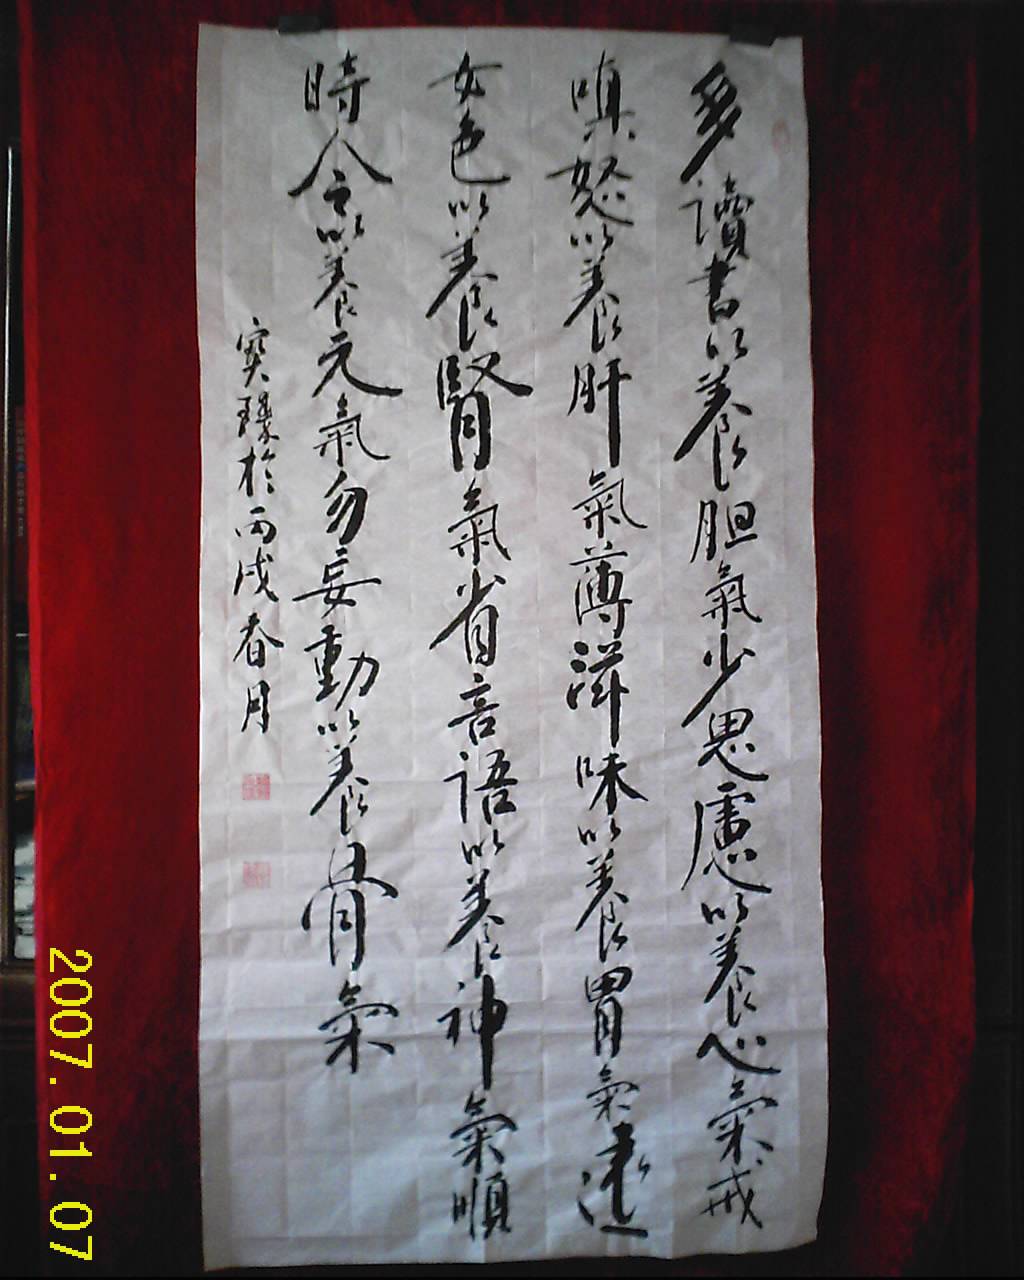 多讀書以養胆氣少思慮以養心氣戒
嗔怒以養肝氣薄滋味以養胃氣遠
女色以養腎氣省言語以養神氣順
時令以養元氣勿妄動以養骨氣
寶璟於丙戌春月
2007.01.07